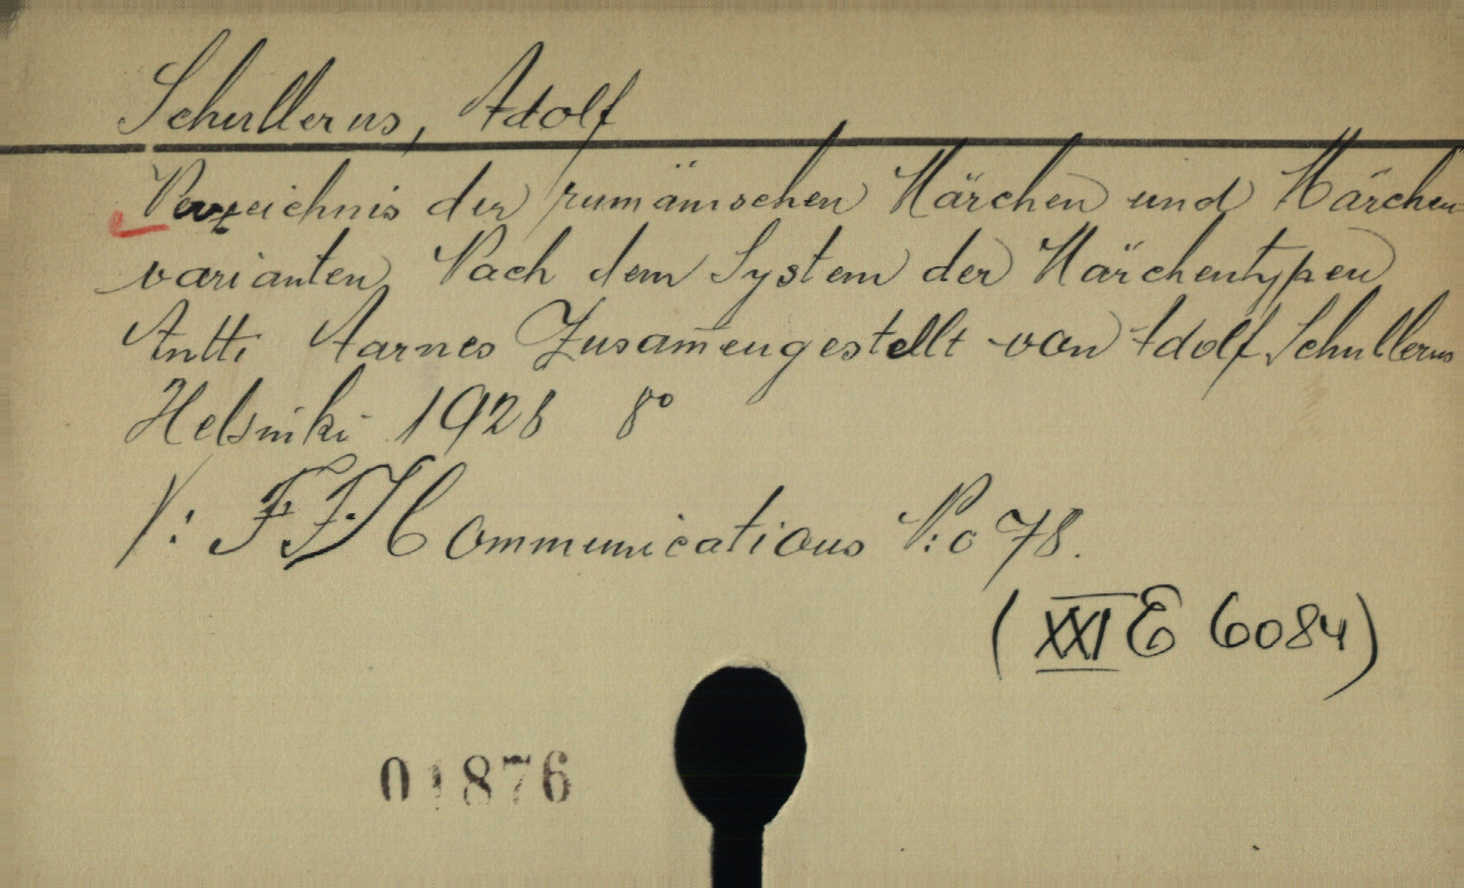 Schullerus, Adolf
Verzeichnis der rumänischen Märchen und Märchen-
varianten Nach dem System der Märchentypen
Antti Aarnes Zusam̄engestellt von Adolf Schullerus
Helsinki 1928 8°
V: F. F. Communications N:o 78.
(XXI E 6084)
01876